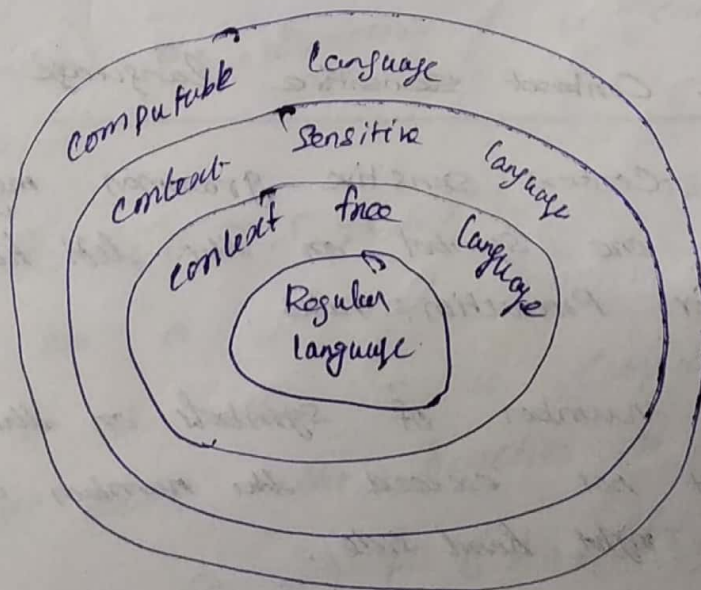 computable language
context sensitive language
context free language
Regular
language